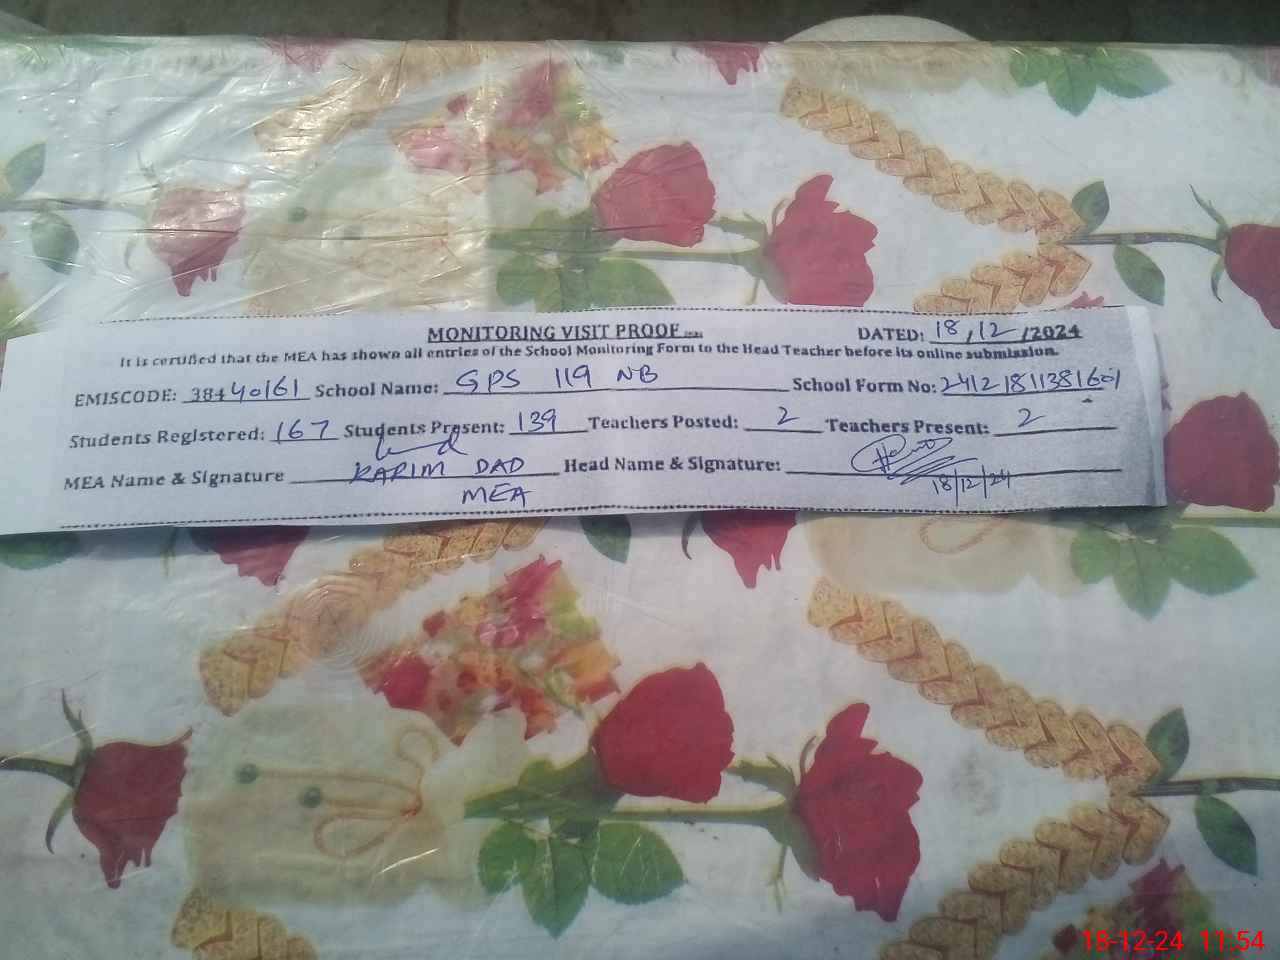 MONITORING VISIT PROOF
DATED: 18/12/2024
It is certified that the MEA has shown all entries of the School Monitoring Form to the Head Teacher before its online submission.
EMISCODE: 38440161 School Name: GPS 119 NB School Form No: 24121811381601
Students Registered: 167 Students Present: 139 Teachers Posted: 2 Teachers Present: 2
MEA Name & Signature KARIM DAD Head Name & Signature:
MEA 18/12/24
18-12-24 11:54